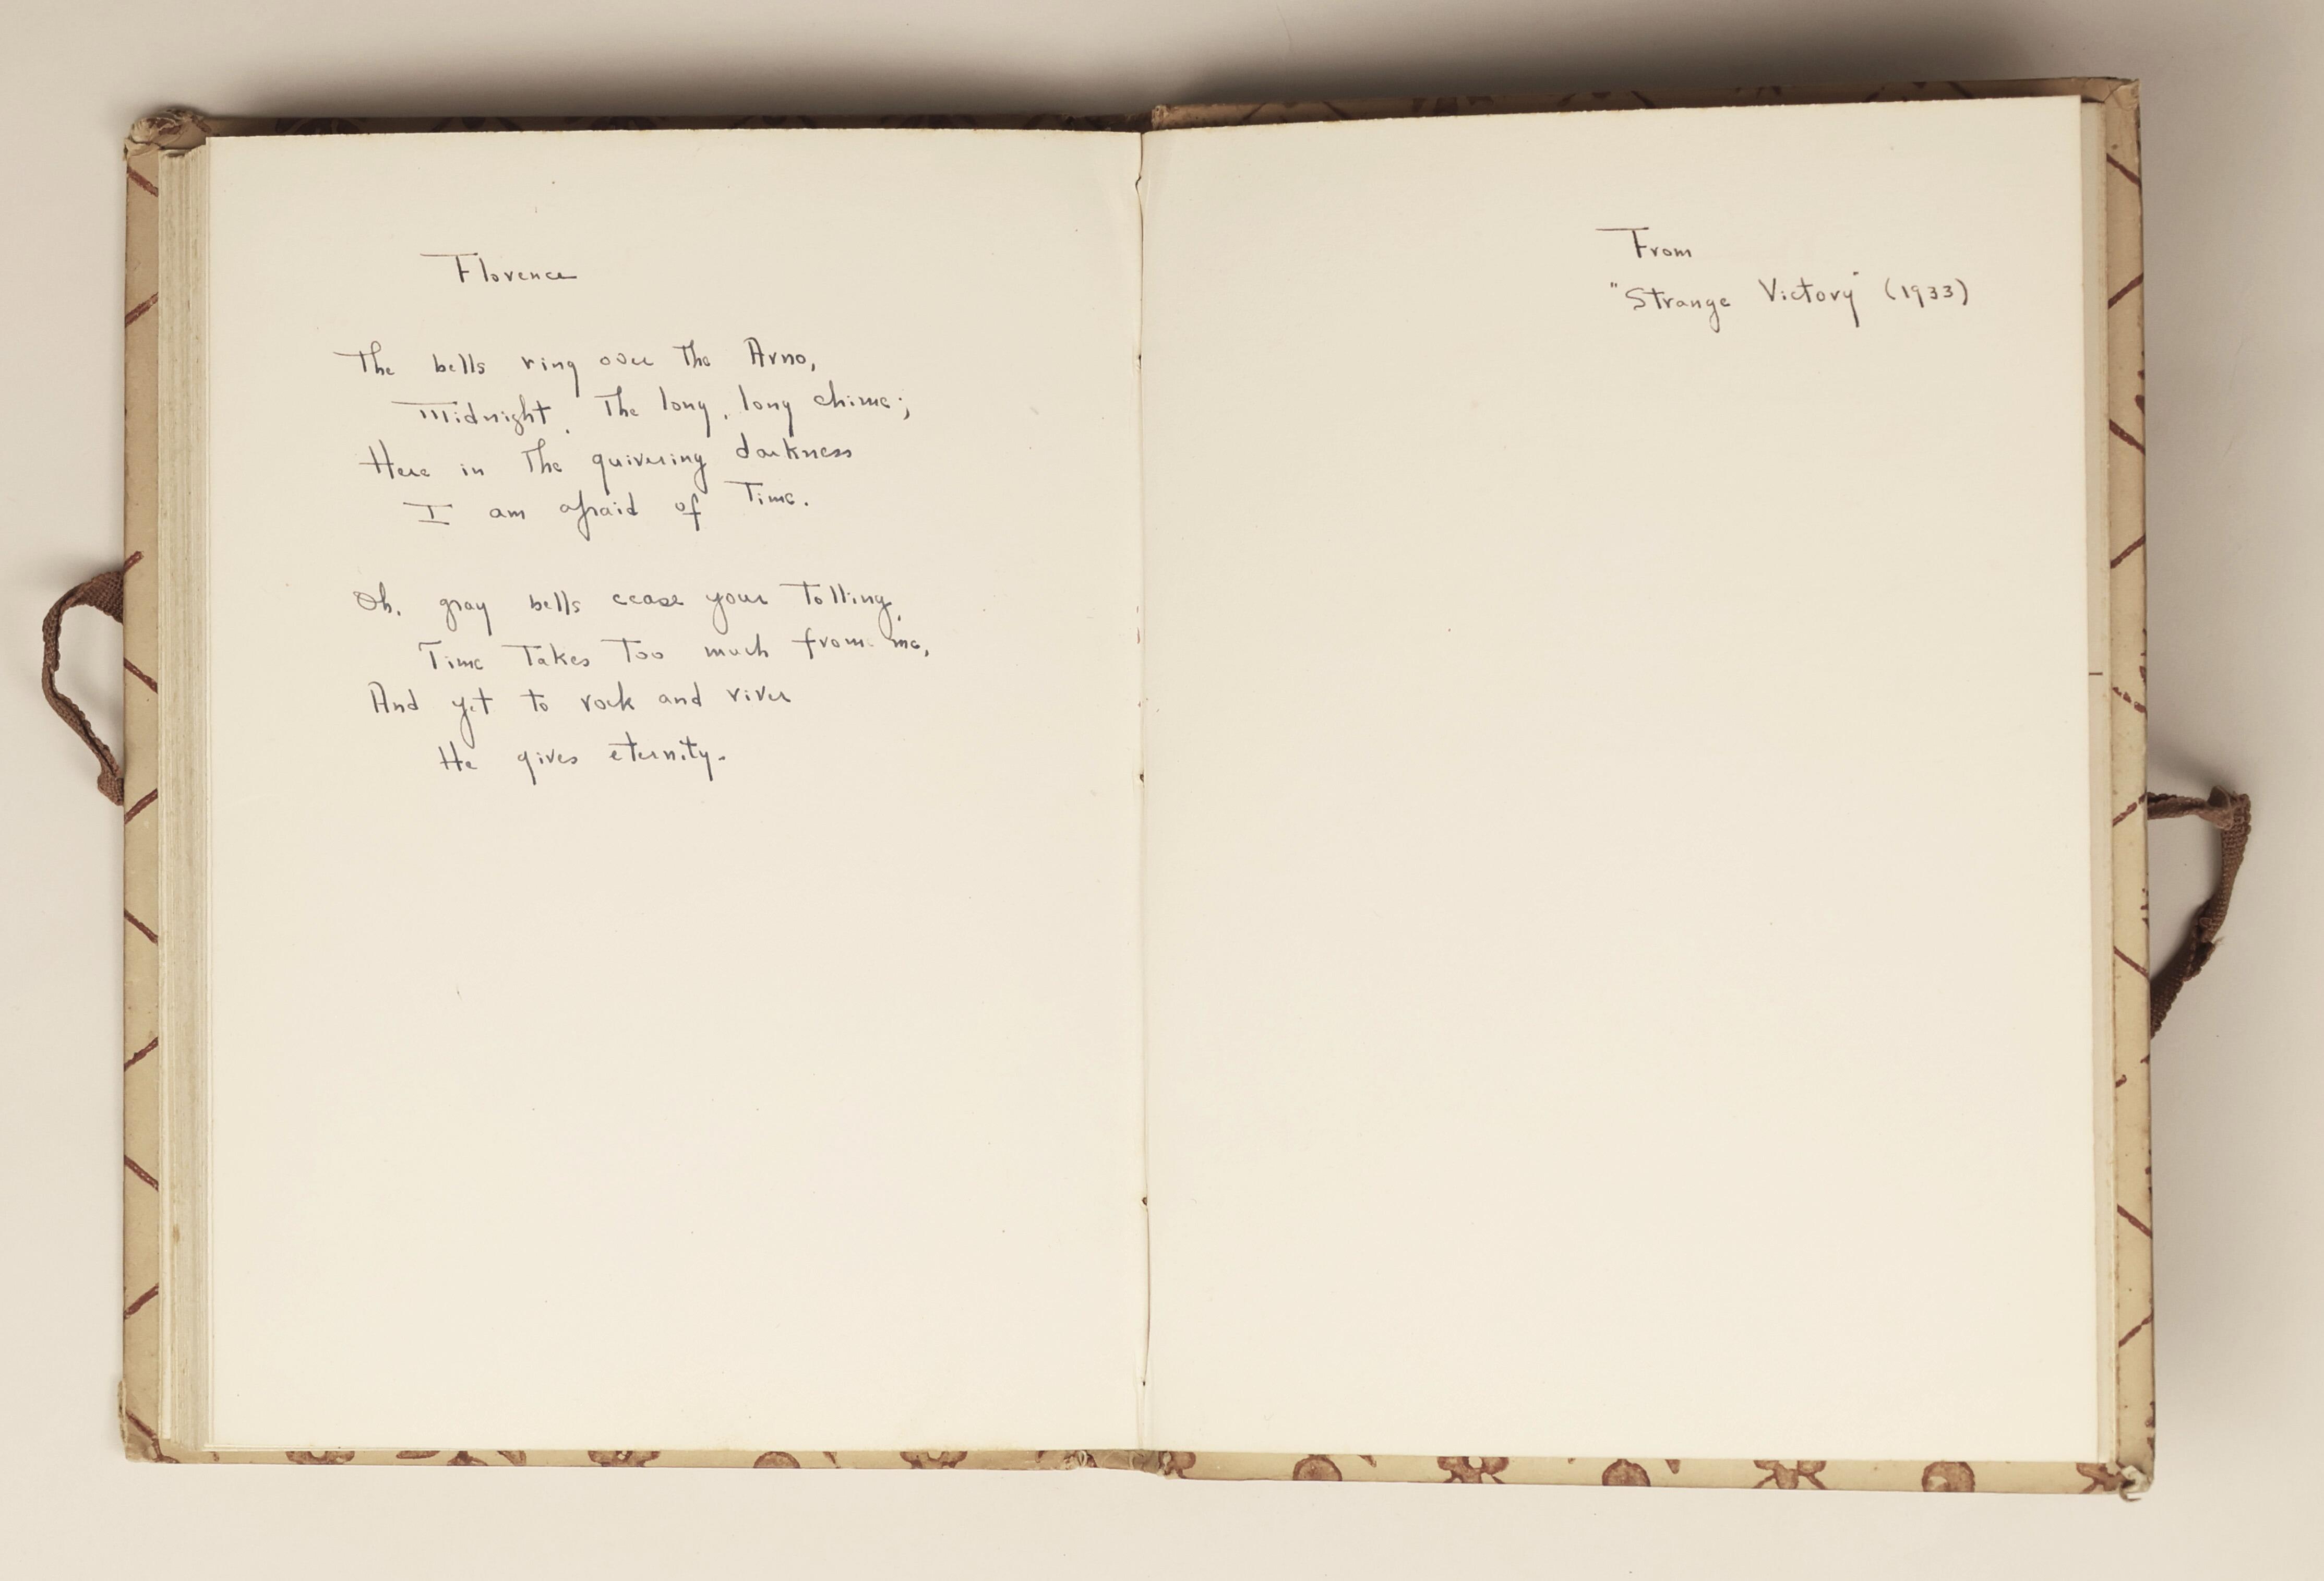 Florence
The bells ring over the Arno,
Midnight, the long, long chime;
Here in the quivering darkness
I am afraid of Time.
Oh, gray bells cease your tolling,
Time takes too much from me,
And yet to rock and river
He gives eternity.
From
"Strange Victory" (1933)